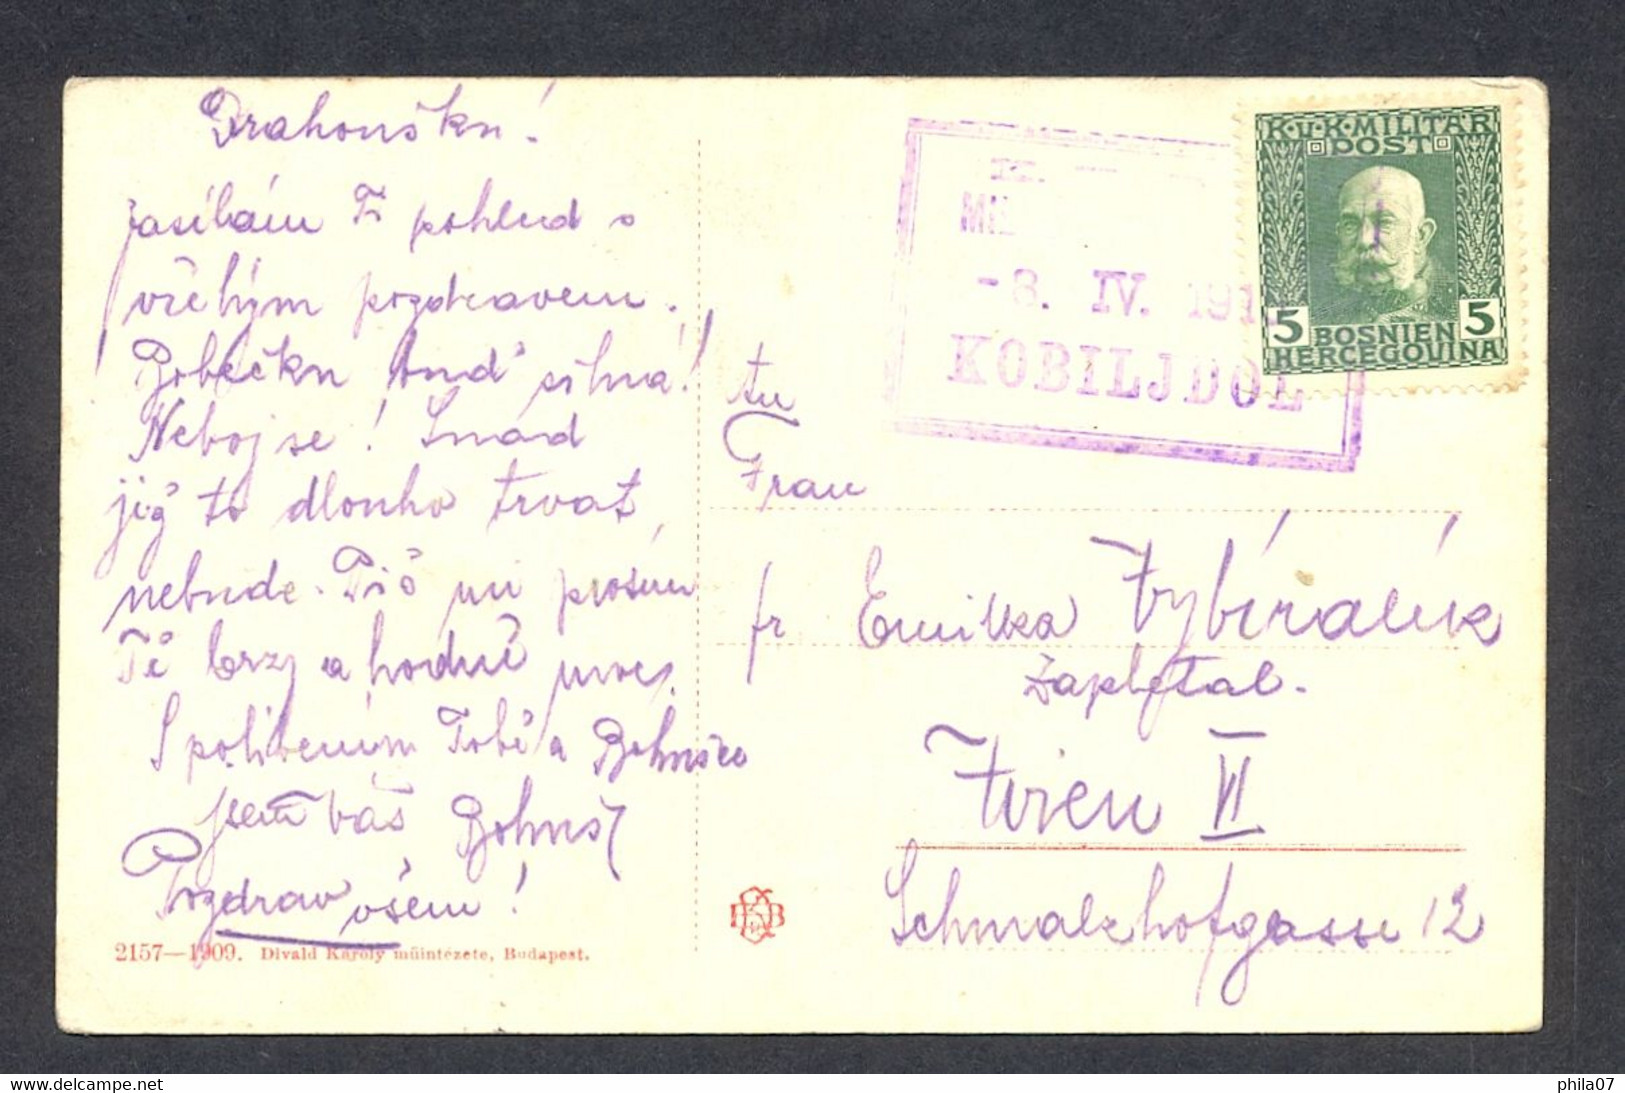 Drahoušku!
zasílám Ti pohled s
vřelým pozdravem.
buď silná!
Neboj se! Snad
již to dlouho trvat
nebude. Piš mi prosím
Tě brzy a hodně moc.
S políbením Tobě a Bohušeo
jsem váš Bohuš
Pozdrav všem!
2157—1909. Divald Károly műintézete, Budapest.
III.
MIL
-8. IV. 191
KOBILJDOL
K.U.K. MILITÄR
POST
5 BOSNIEN 5
HERCEGOVINA
An
Frau
fr Emilka Vybíralík
Zapletal.
Wien VI
Schmalzhofgasse 12
delcampe.net
phila07